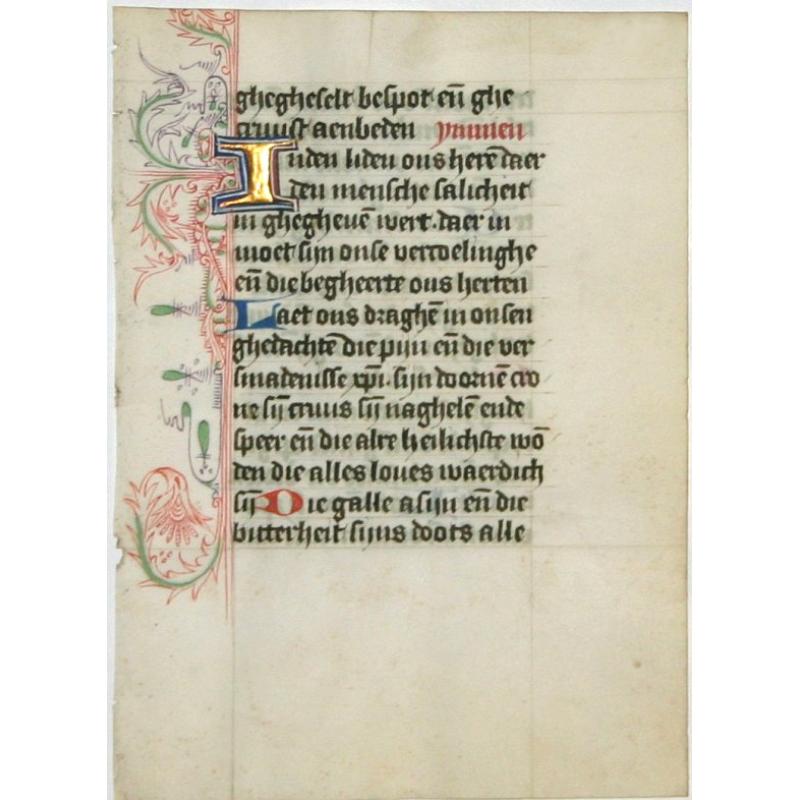 ghegheselt bespot eñ ghe
cruust aenbeden ymnen
Inden liden ons herē daer
den mensche salicheit
in ghegheuē wert. daer in
moet sijn onse verroelinghe
eñ die begheerte ons herten
Laet ons draghē in onsen
ghedachtē die pijn eñ die ver
smadenisse xp̄i. sijn doornē cro
ne sij̄ cruus sij̄ naghelē ende
speer eñ die alre heilichste wō
den die alles loues waerdich
sij̄ Die galle asijn eñ die
bitterheit sijns doots alle